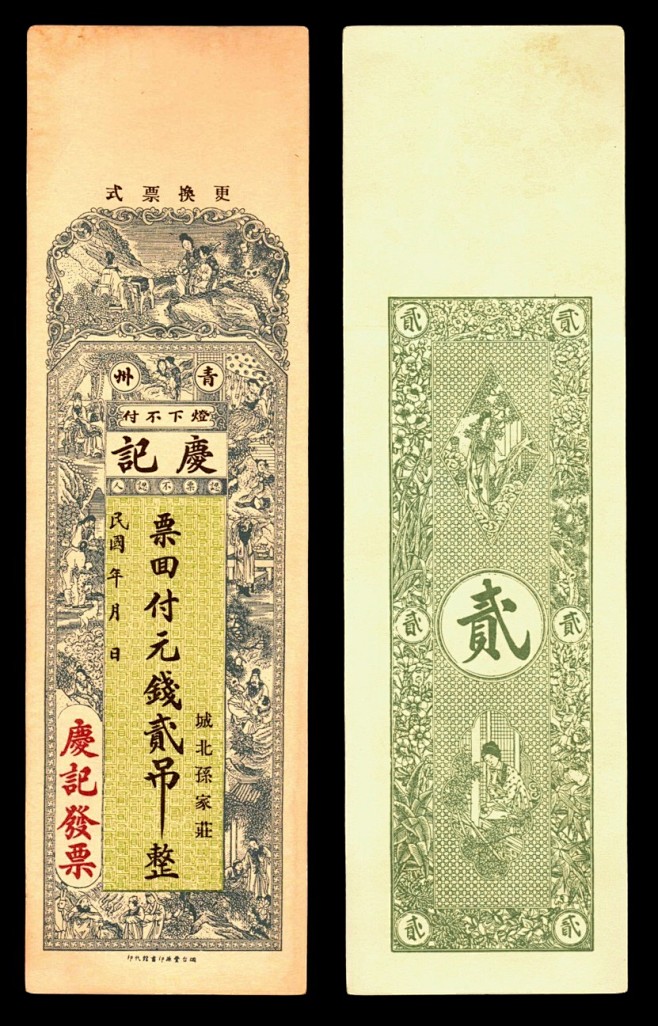 更換票式
青州
燈下不付
慶記
認票不認人
城北孫家莊
票囬付元錢貳吊整
民國年月日
慶記發票
貳
貳
貳
貳
貳
貳
貳